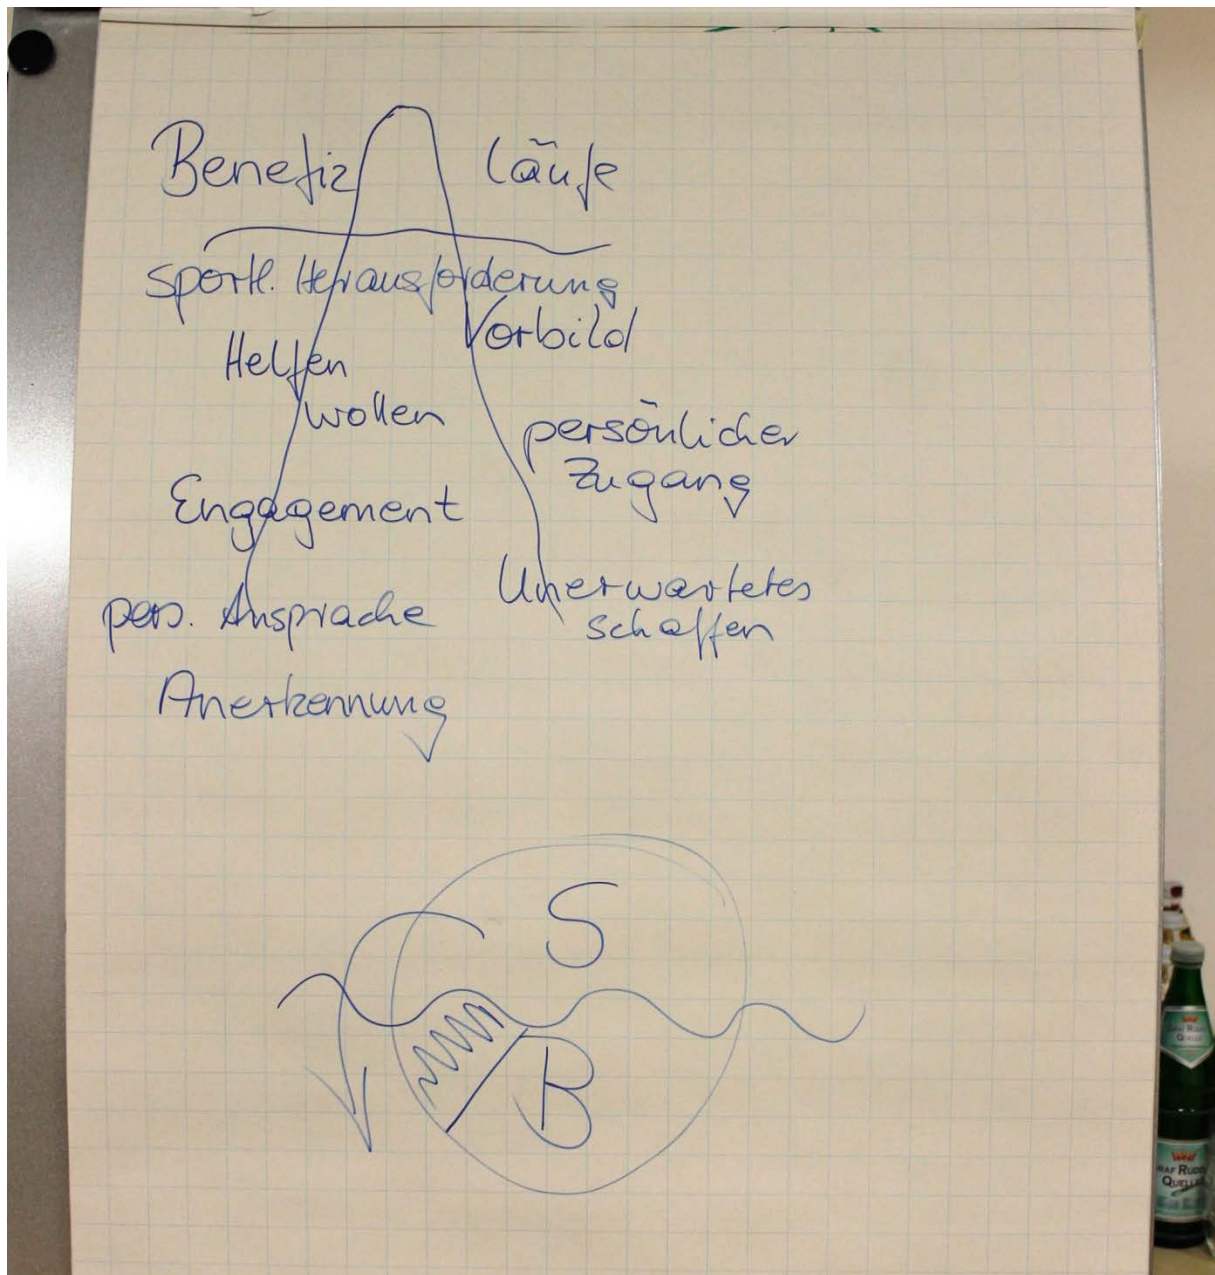 Benefiz läufe
sportl. Herausforderung
Vorbild
Helfen
wollen
persönlicher
Zugang
Engagement
Unerwartetes
schaffen
pers. Ansprache
Anerkennung
S
B
GRAF RUDOLF
QUELLE